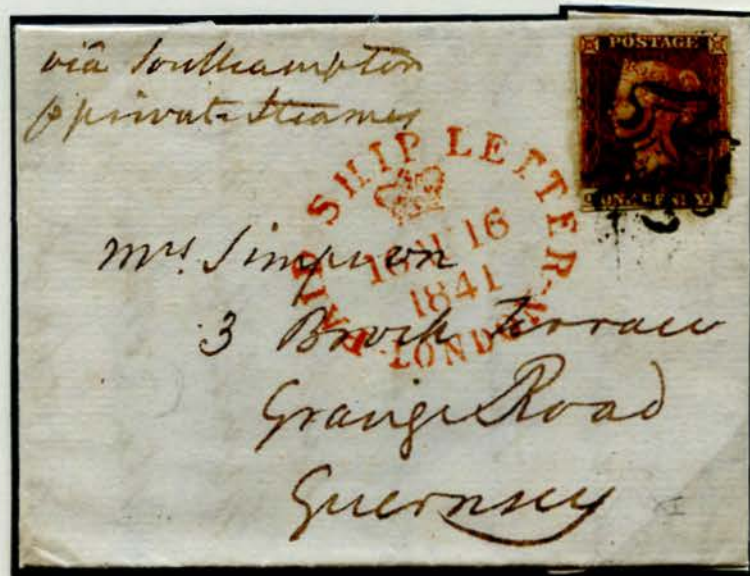 via Southampton
p private Steamer
POSTAGE
ONE PENNY
PAID SHIP LETTER
16 16
1841
LONDON
Mrs Simpson
3 Brock Terrace
Grange Road
Guernsey